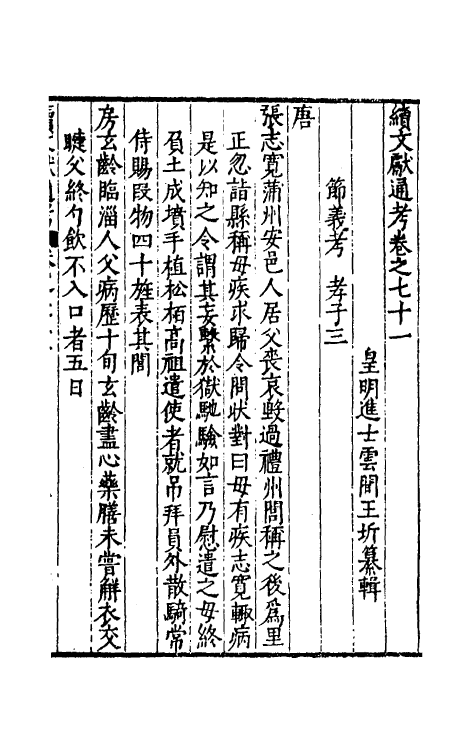 續文獻通考卷之七十一
皇明進士雲間王圻纂輯
節義考 孝子三
唐
張志寬蒲州安邑人居父喪哀毀過禮州閭稱之後爲里
正忽詣縣稱母疾求歸令問狀對曰母有疾志寬輙病
是以知之令謂其妄繫於獄馳驗如言乃慰遣之母終
負土成墳手植松栢高祖遣使者就吊拜員外散騎常
侍賜段物四十旌表其閭
房玄齡臨淄人父病歷十旬玄齡盡心藥膳未嘗解衣交
睫父終勺飲不入口者五日